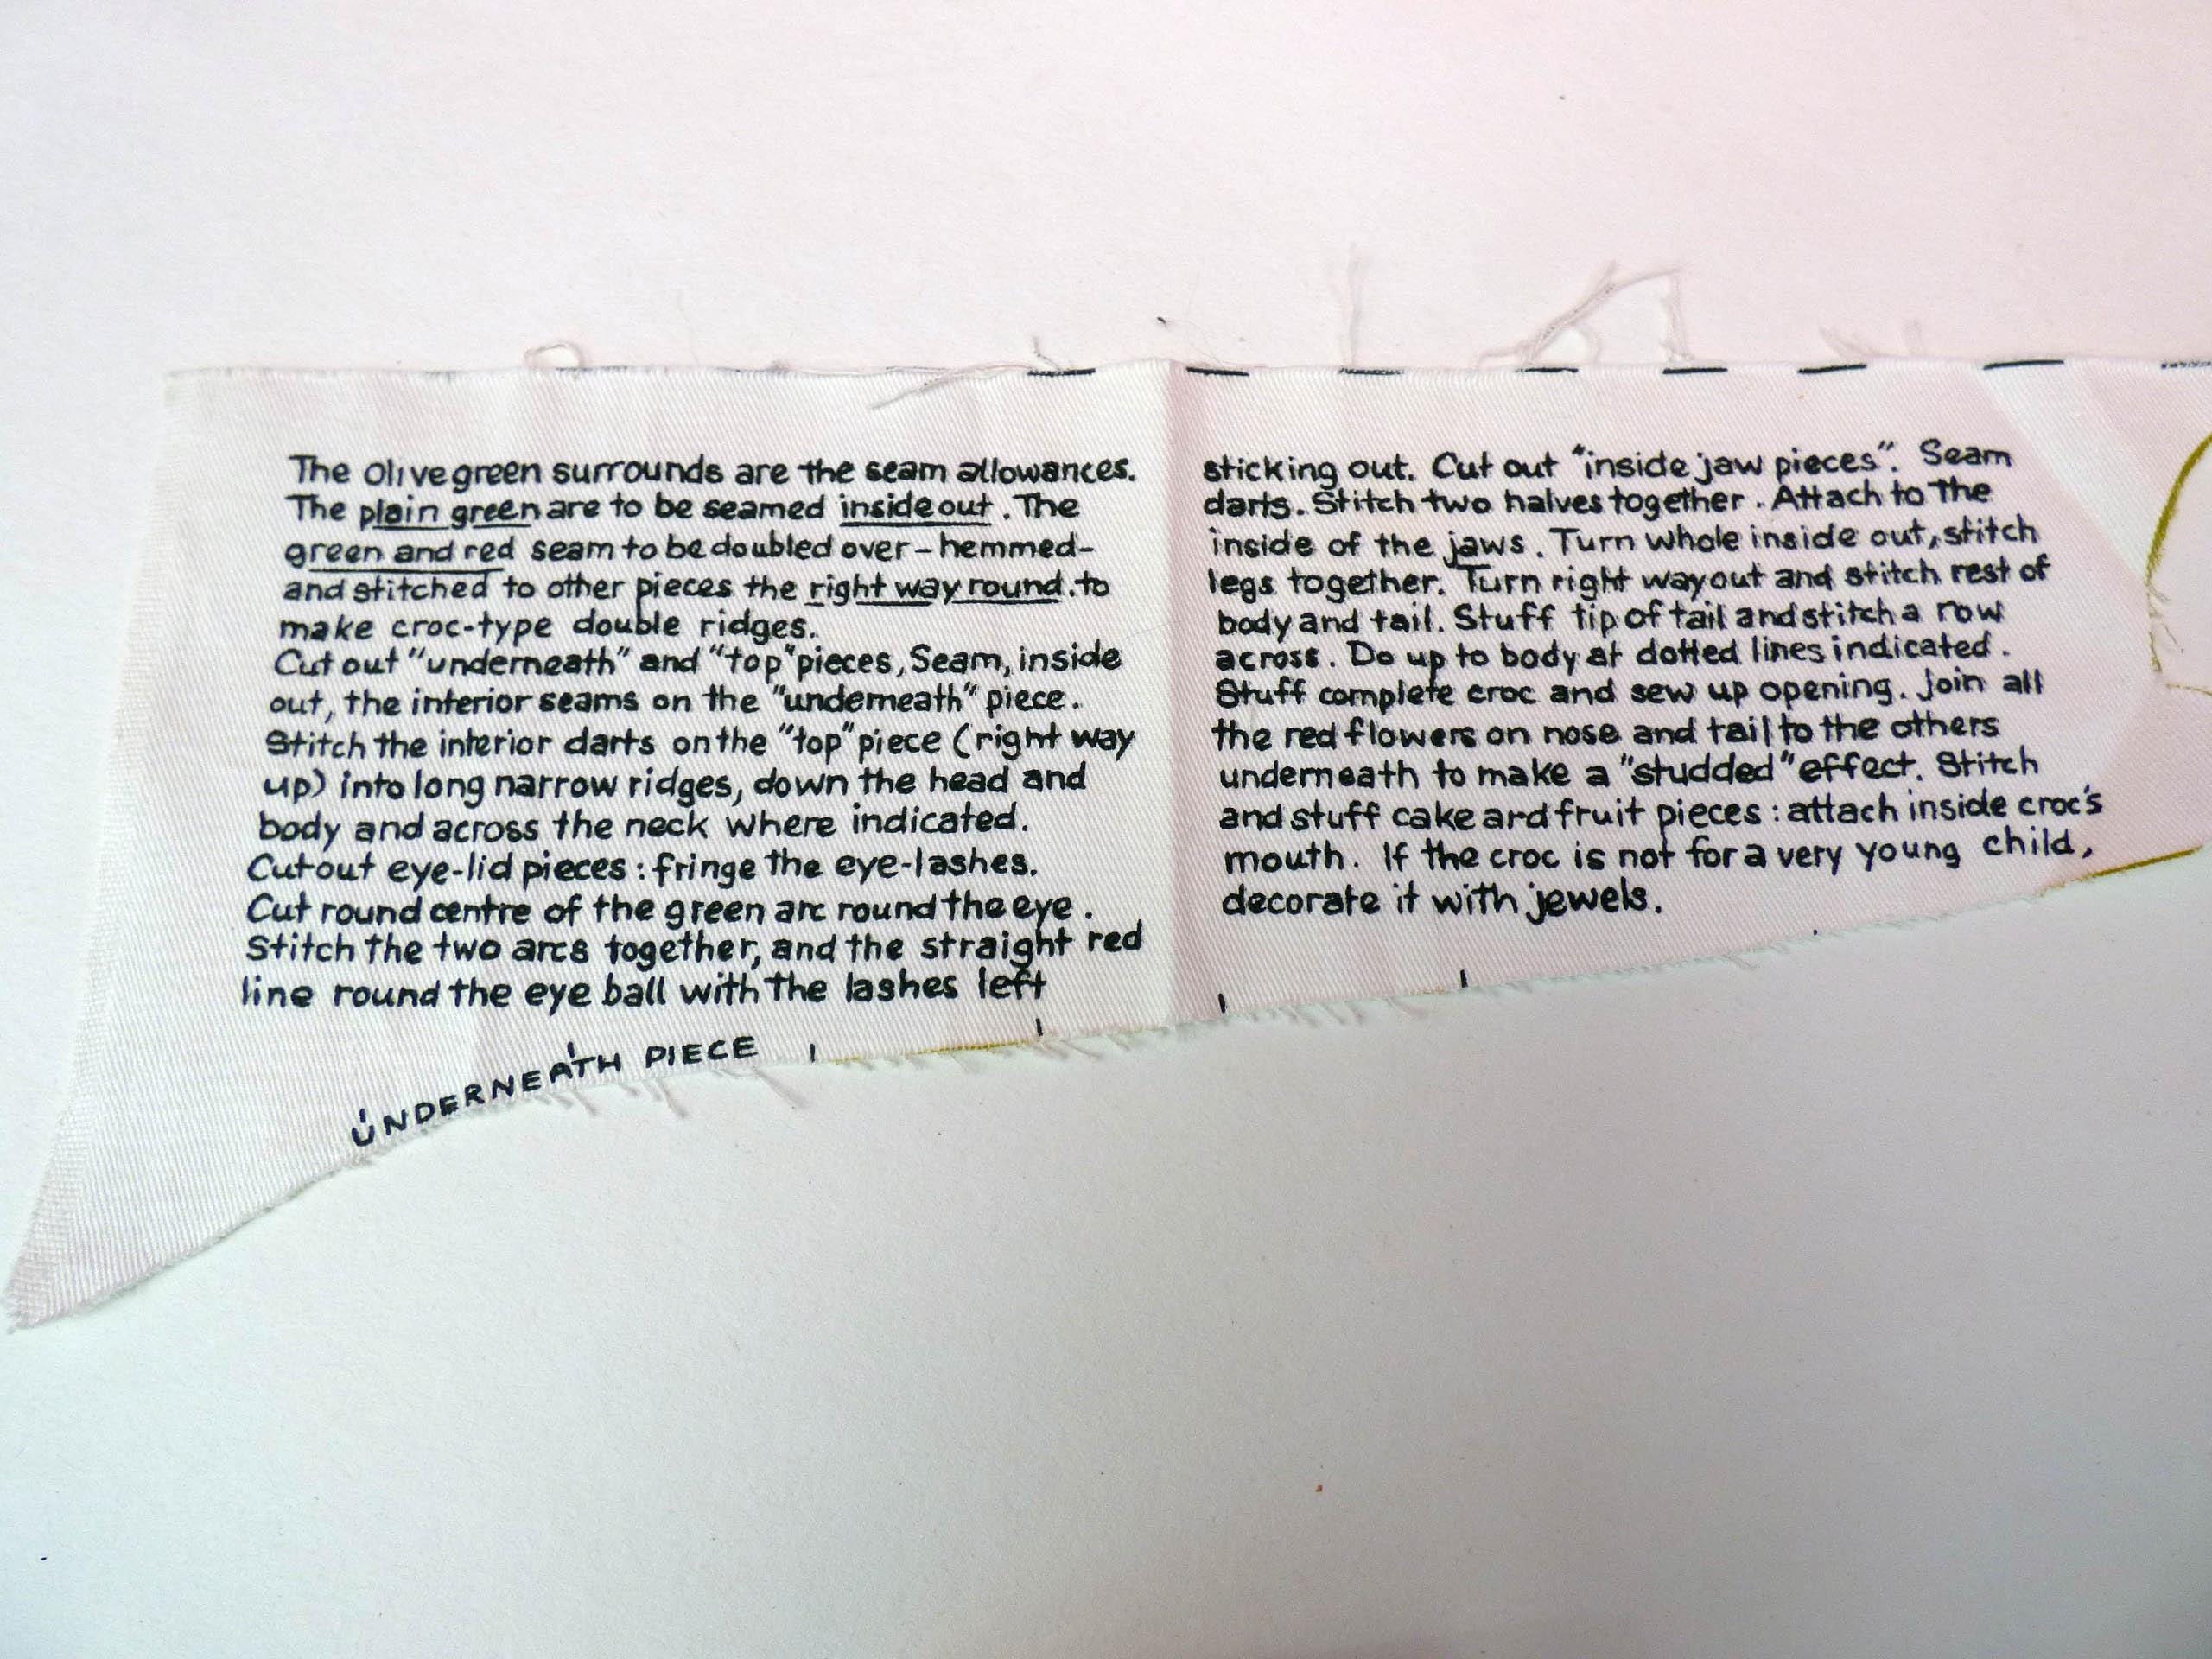 The Olive green surrounds are the seam allowances.
The plain green are to be seamed inside out. The
green and red seam to be doubled over - hemmed-
and stitched to other pieces the right way round. to
make croc-type double ridges.
Cut out "underneath" and "top" pieces, Seam, inside
out, the interior seams on the "underneath" piece.
Stitch the interior darts on the "top" piece (right way
up) into long narrow ridges, down the head and
body and across the neck where indicated.
Cut out eye-lid pieces : fringe the eye-lashes.
Cut round centre of the green arc round the eye.
Stitch the two arcs together, and the straight red
line round the eye ball with the lashes left
UNDERNEATH PIECE
sticking out. Cut out "inside jaw pieces". Seam
darts. Stitch two halves together. Attach to the
inside of the jaws. Turn whole inside out, stitch
legs together. Turn right way out and stitch rest of
body and tail. Stuff tip of tail and stitch a row
across. Do up to body at dotted lines indicated.
Stuff complete croc and sew up opening. Join all
the red flowers on nose and tail to the others
underneath to make a "studded" effect. Stitch
and stuff cake ard fruit pieces : attach inside croc's
mouth. If the croc is not for a very young child,
decorate it with jewels.